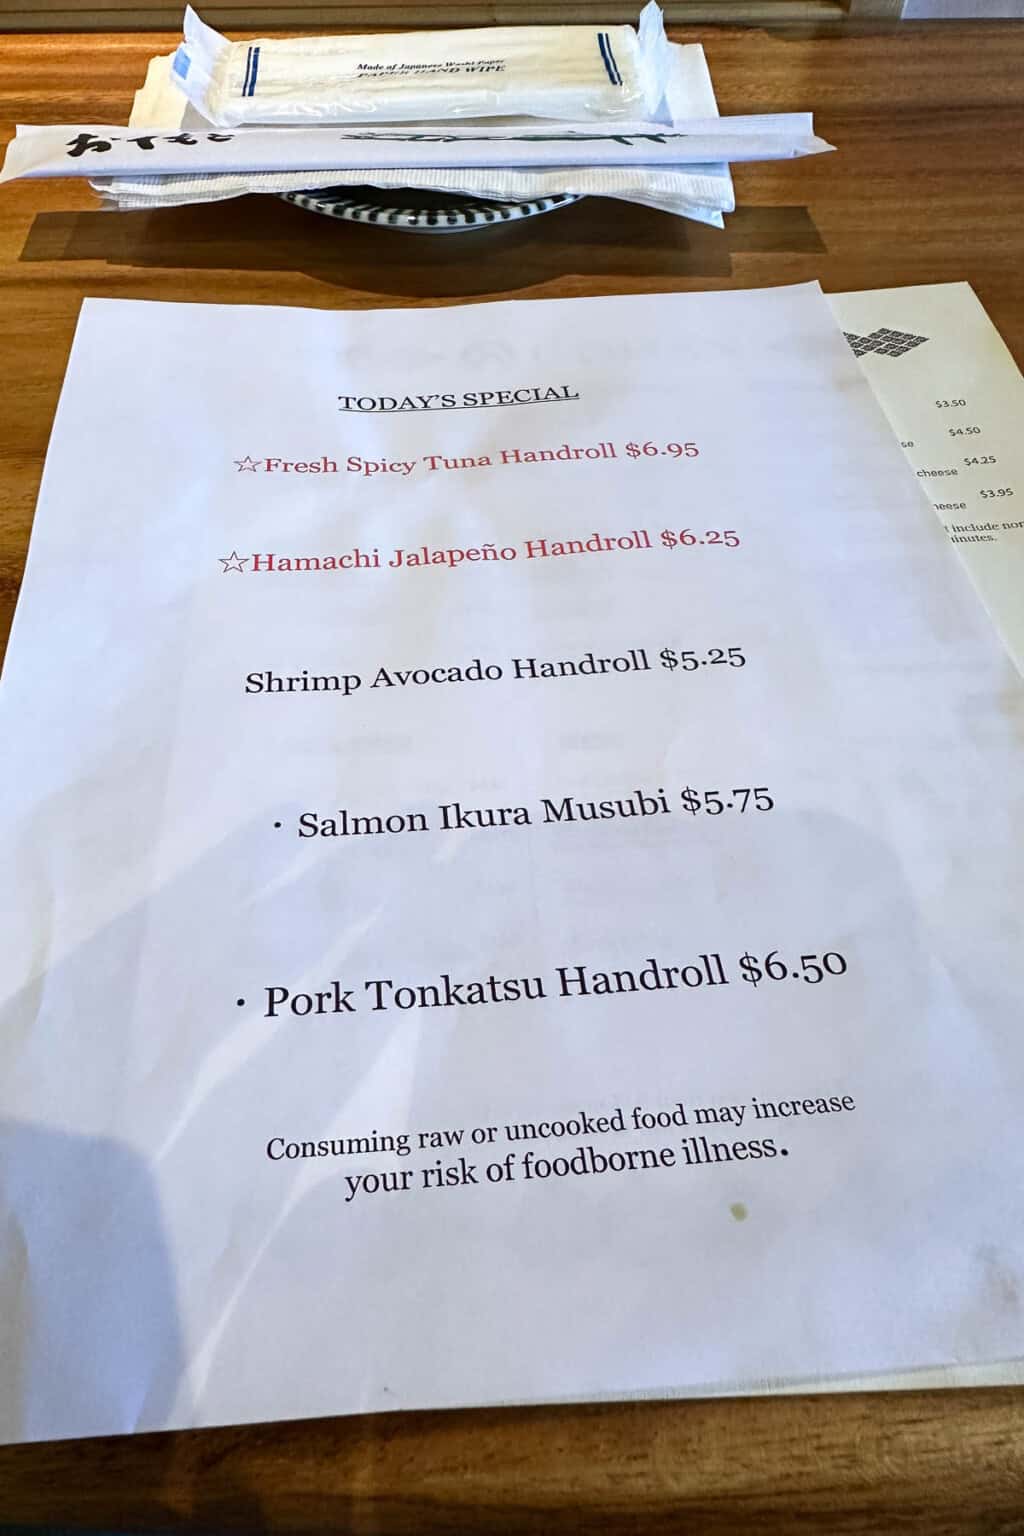 Made of Japanese Washi Paper
PAPER HAND WIPE
おてもと
TODAY'S SPECIAL
☆Fresh Spicy Tuna Handroll $6.95
☆Hamachi Jalapeño Handroll $6.25
Shrimp Avocado Handroll $5.25
· Salmon Ikura Musubi $5.75
· Pork Tonkatsu Handroll $6.50
Consuming raw or uncooked food may increase
your risk of foodborne illness.
$3.50
$4.50
cheese $4.25
$3.95
include